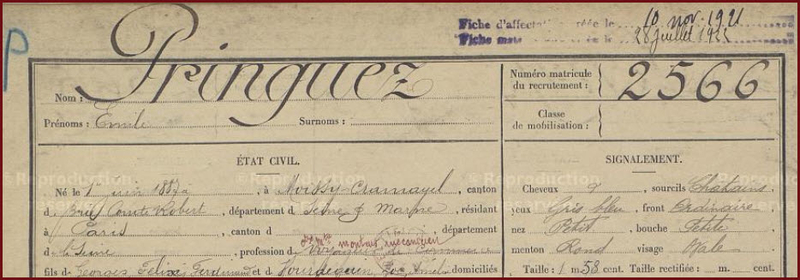 P
Fiche d'affectation créée le 10 nov. 1921
Fiche le 28 juillet 1922
Nom : Pringuez
Prénoms : Emile Surnoms :
Numéro matricule du recrutement : 2566
Classe de mobilisation :
ÉTAT CIVIL.
Né le 1er juin 1887 à Moissy-Cramayel, canton
d Brie Comte Robert, département d Seine & Marne, résidant
à Paris canton d département
d la Seine profession d monteur mécanicien
fils de Georges, Félix, Ferdinand et d domiciliés
SIGNALEMENT.
Cheveux sourcils Chatains
yeux Gris bleu, front Ordinaire
nez Petit, bouche Petite
menton Rond visage Ovale
Taille : 1 m. 53 cent. Taille rectifiée : m. cent.
©Reproduction
©Reproduction
©Reproduction